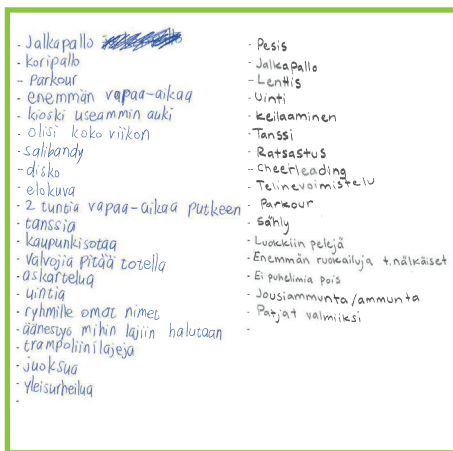 - Jalkapallo
- koripallo
- Parkour
- enemmän vapaa-aikaa
- kioski useammin auki
- olisi koko viikon
- salibandy
- disko
- elokuva
- 2 tuntia vapaa-aikaa putkeen
- tanssia
- kaupunkisotaa
- valvojia pitää totella
- askartelua
- uintia
- ryhmille omat nimet
- äänestys mihin lajiin halutaan
- trampoliinilajeja
- juoksua
- yleisurheilua
-
- Pesis
- Jalkapallo
- Lenttis
- Uinti
- Keilaaminen
- Tanssi
- Ratsastus
- Cheerleading
- Telinevoimistelu
- Parkour
- Sähly
- Luokkiin pelejä
- Enemmän ruokailuja t.nälkäiset
- Ei puhelimia pois
- Jousiammunta/ammunta
- Patjat valmiiksi
-